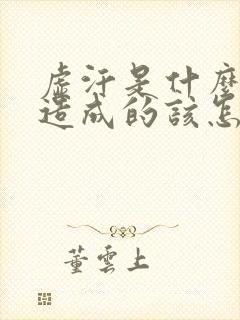 虛汗是什麼
造成的該怎
董雲上